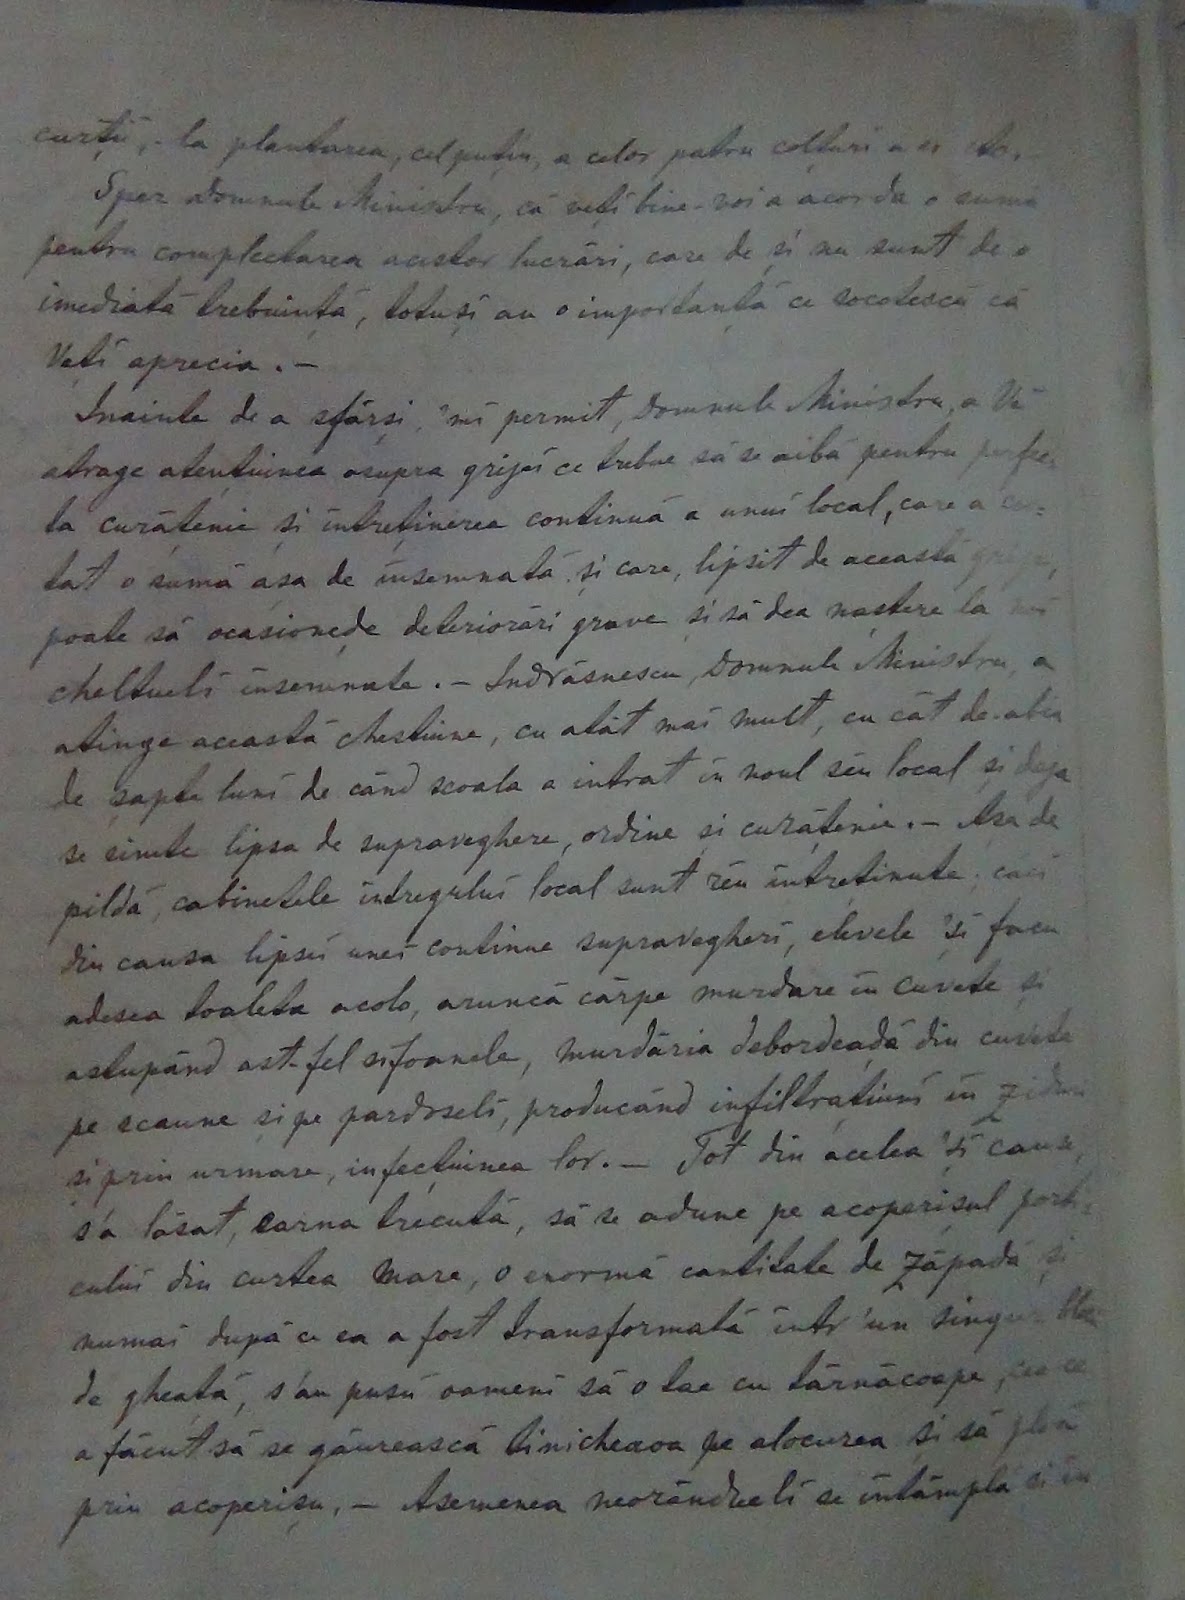 curții, - la plantarea, cel puțin, a celor patru colțuri a ei etc. -
Sper Domnule Ministru, că veți bine-voi a acorda o sumă
pentru complectarea acestor lucrări, care de și nu sunt de o
imediată trebuință, totuși au o importanță ce socotescu că
Veți aprecia. -
Inainte de a sfârși, 'mi permit, Domnule Ministru, a Vă
atrage atențiunea asupra grijei ce trebue să se aibă pentru perfec-
ta curățenie și întreținerea continuă a unui local, care a cos-
tat o sumă așa de însemnată și care, lipsit de această grije,
poate să ocasioneḑe deteriorări grave și să dea naștere la noi
cheltueli însemnate. - Indrăsnescu, Domnule Ministru, a
atinge această chestiune, cu atât mai mult, cu cât de-abia
de șapte luni de când scoala a intrat în noul sĕu local și deja
se simte lipsa de supraveghere, ordine și curățenie. - Asa de
pildă, cabinetele întregului local sunt rĕu întreținute, căci
din causa lipsei unei continue supravegheri, elevele 'și facu
adesea toaleta acolo, aruncă cârpe murdare în cuvete și
astupând ast-fel sifoanele, murdăria debordeaḑă din cuvete
pe scaune și pe pardoseli, producând infiltrațiuni în ziduri
și prin urmare, infecțiunea lor. - Tot din acelea 'și cause,
s'a lăsat, earna trecută, să se adune pe acoperișul porti-
cului din curtea mare, o enormă cantitate de zăpadă și
numai după ce ea a fost transformată într'un singur bloc
de gheață, s'au pusu oameni să o tae cu târnăcoape, cea ce
a făcut să se găurească tinicheaoa pe alocurea și să ploă
prin acoperișu. - Asemenea neorândueli se întâmplă și în